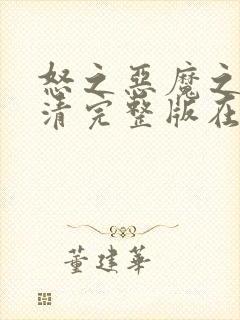 怒之恶魔之
清完整版在
董建华